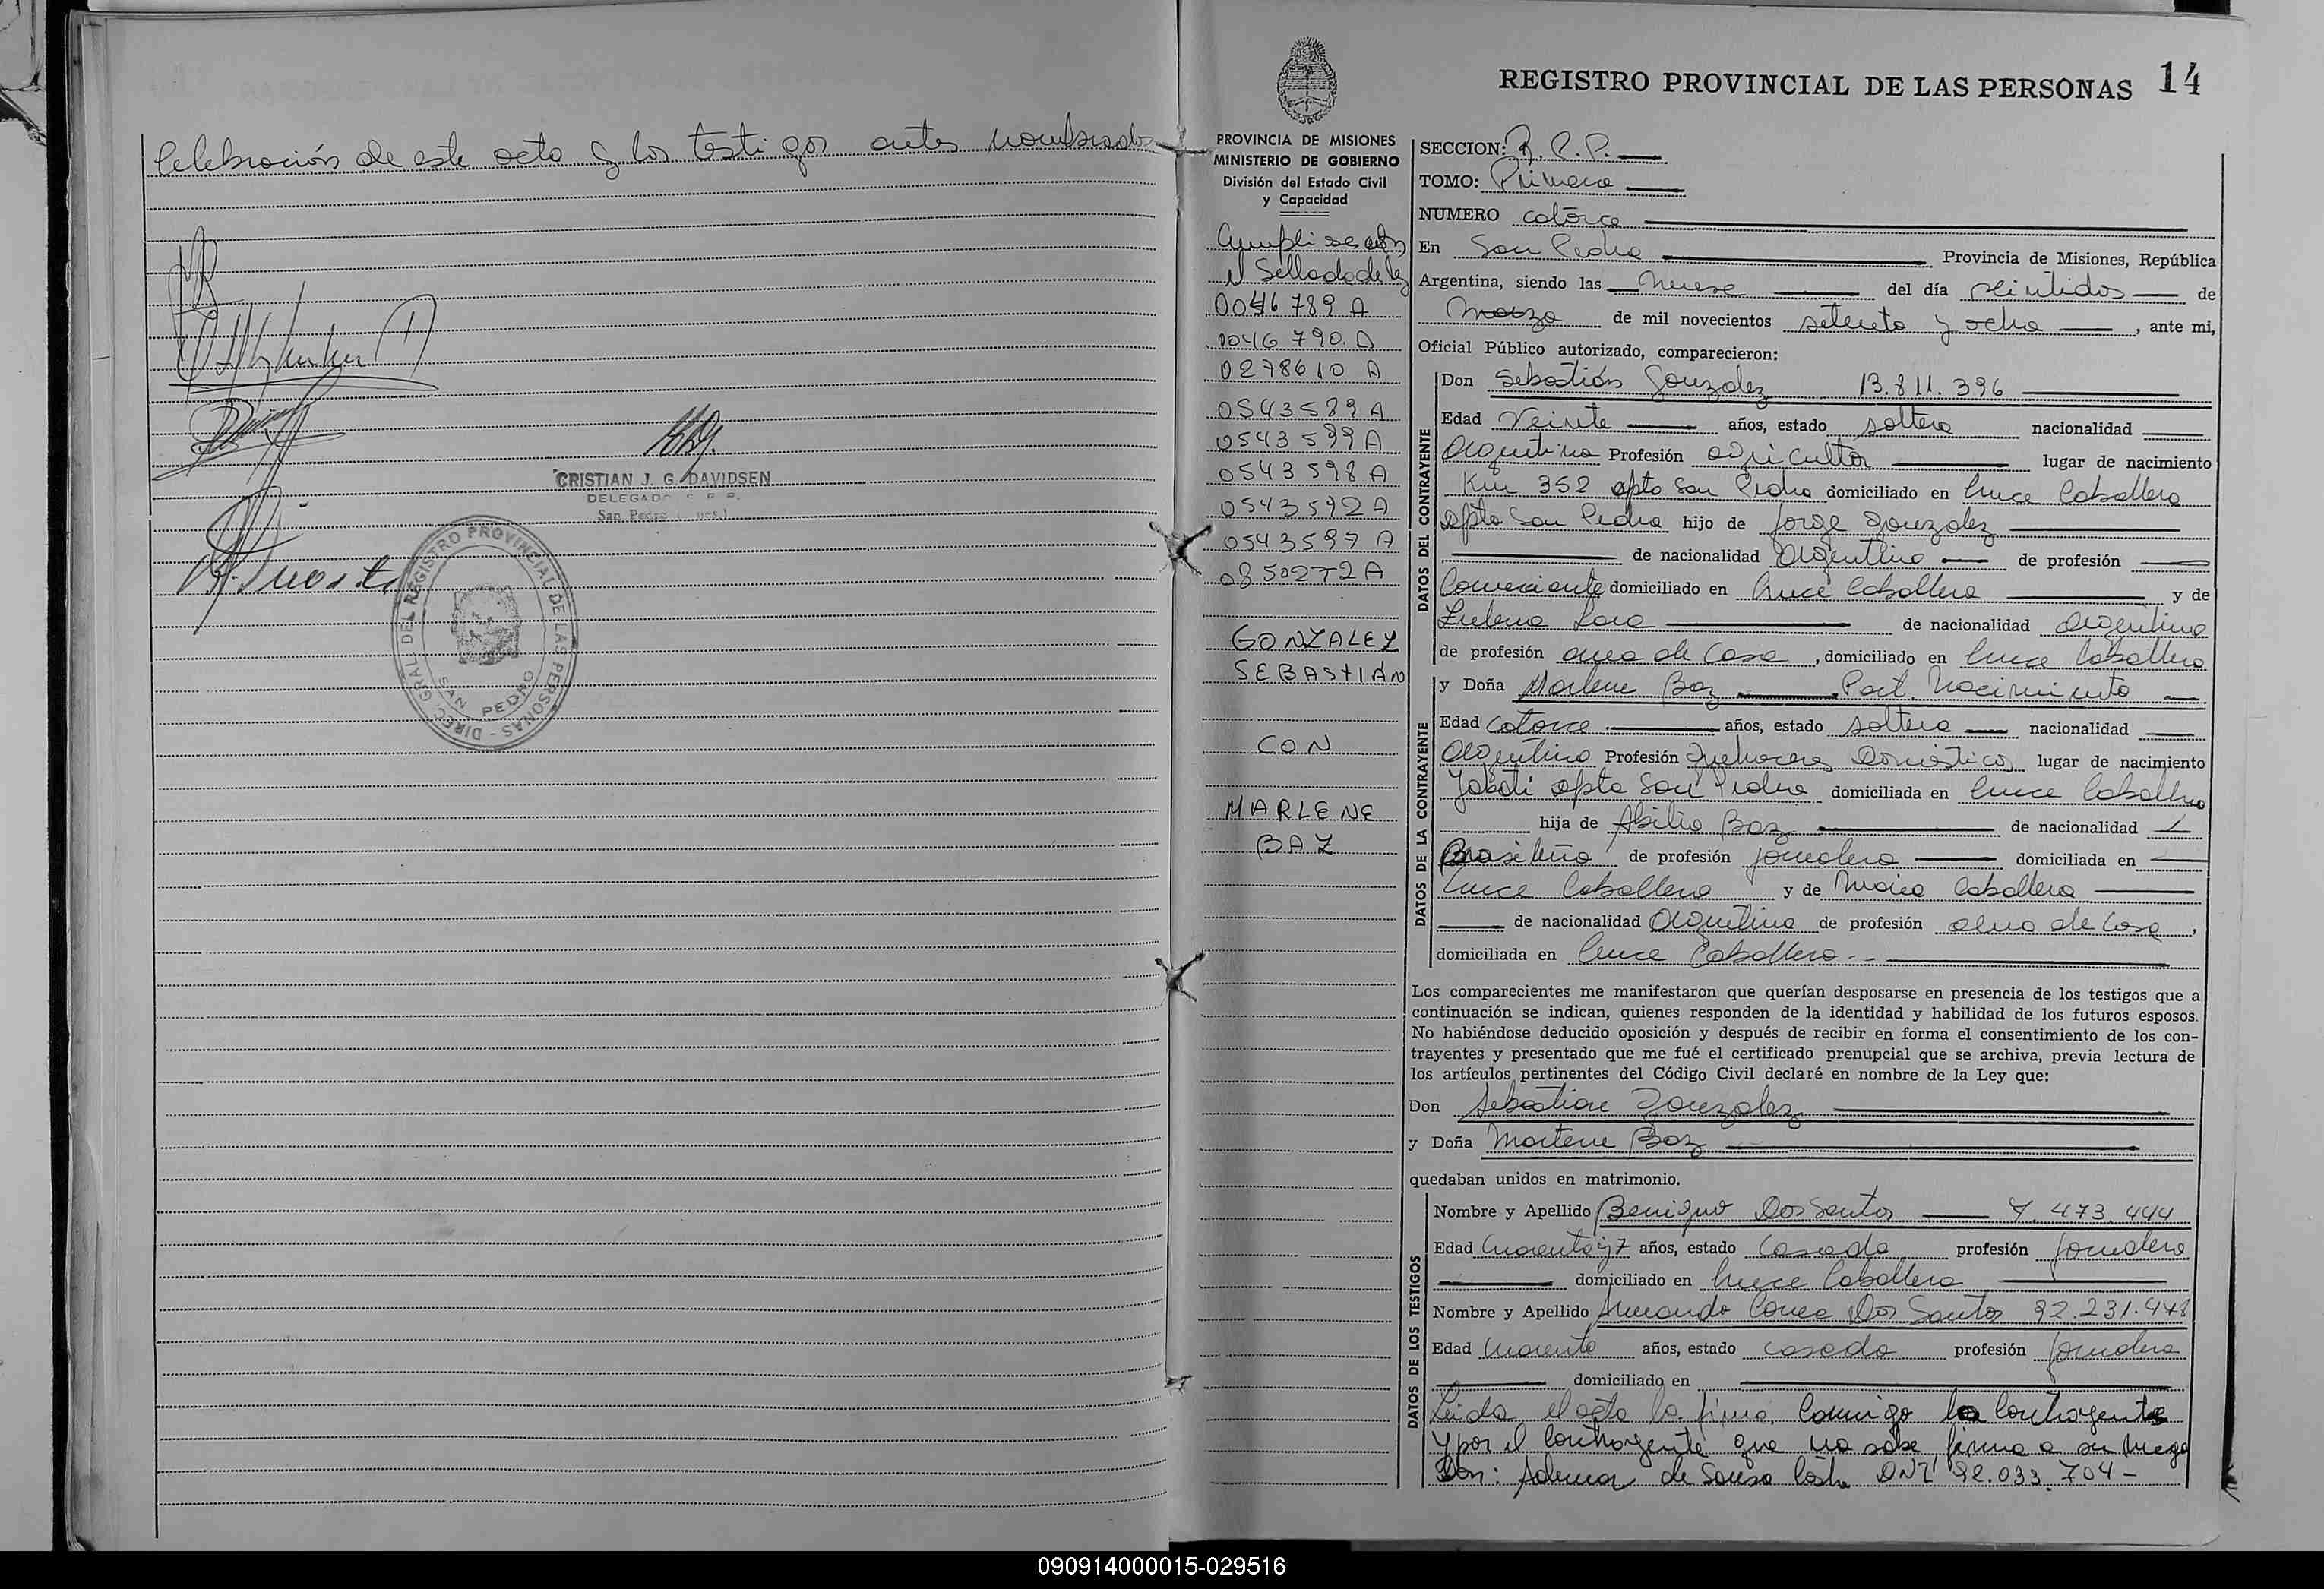 Celebración de este acto y los testigos antes nombrados
CRISTIAN J. G. DAVIDSEN
DELEGADO
San Pedro
DIREC. GRAL DEL REGISTRO PROVINCIAL DE LAS PERSONAS -
SAN PEDRO
REGISTRO PROVINCIAL DE LAS PERSONAS 14
PROVINCIA DE MISIONES
MINISTERIO DE GOBIERNO
División del Estado Civil
y Capacidad
el Sellado de ley
0046789 A
0046790 A
0278610 A
0543589 A
0543599 A
0543598 A
0543592 A
0543597 A
0350272 A
GONZALEZ
SEBASTIÁN
CON
MARLENE
BAZ
SECCION: R.P.P.
TOMO: Primero
NUMERO catorce
En San Pedro Provincia de Misiones, República
Argentina, siendo las nueve del día veintidos de
Marzo de mil novecientos setenta y ocho, ante mi,
Oficial Público autorizado, comparecieron:
DATOS DEL CONTRAYENTE
Don Sebastián Gonzalez 13.811.396
Edad Veinte años, estado soltero nacionalidad
Argentina Profesión agricultor lugar de nacimiento
Km 352 dpto San Pedro domiciliado en Cruce Caballero
dpto San Pedro hijo de Jorge Gonzalez
de nacionalidad Argentino de profesión
Comerciante domiciliado en Cruce Caballero y de
Lara de nacionalidad argentina
de profesión ama de casa, domiciliado en Cruce Caballero
DATOS DE LA CONTRAYENTE
y Doña Marlene Baz Part. Nacimiento
Edad catorce años, estado soltera nacionalidad
Argentina Profesión Quehaceres Domésticos lugar de nacimiento
Yaboti dpto San Pedro domiciliada en Cruce Caballero
hija de Abilio Baz de nacionalidad
Brasileño de profesión jornalero domiciliada en
Cruce Caballero y de Maria Caballero
de nacionalidad Argentina de profesión ama de casa,
domiciliada en Cruce Caballero
Los comparecientes me manifestaron que querían desposarse en presencia de los testigos que a
continuación se indican, quienes responden de la identidad y habilidad de los futuros esposos.
No habiéndose deducido oposición y después de recibir en forma el consentimiento de los con-
trayentes y presentado que me fué el certificado prenupcial que se archiva, previa lectura de
los artículos pertinentes del Código Civil declaré en nombre de la Ley que:
Don Sebastian Gonzalez
y Doña Marlene Baz
quedaban unidos en matrimonio.
DATOS DE LOS TESTIGOS
Nombre y Apellido Benigno Dos Santos 7.473.444
Edad Cuarenta y 7 años, estado casado profesión jornalero
domiciliado en Cruce Caballero
Nombre y Apellido Armando Correa Dos Santos 92.231.448
Edad Cuarenta años, estado casado profesión jornalero
domiciliado en
Leida el acta la firma conmigo la contrayente
y por el contrayente que no sabe firma a su ruego
Don: Ademar de Souza Costa DNI 92.033.704 -
090914000015-029516